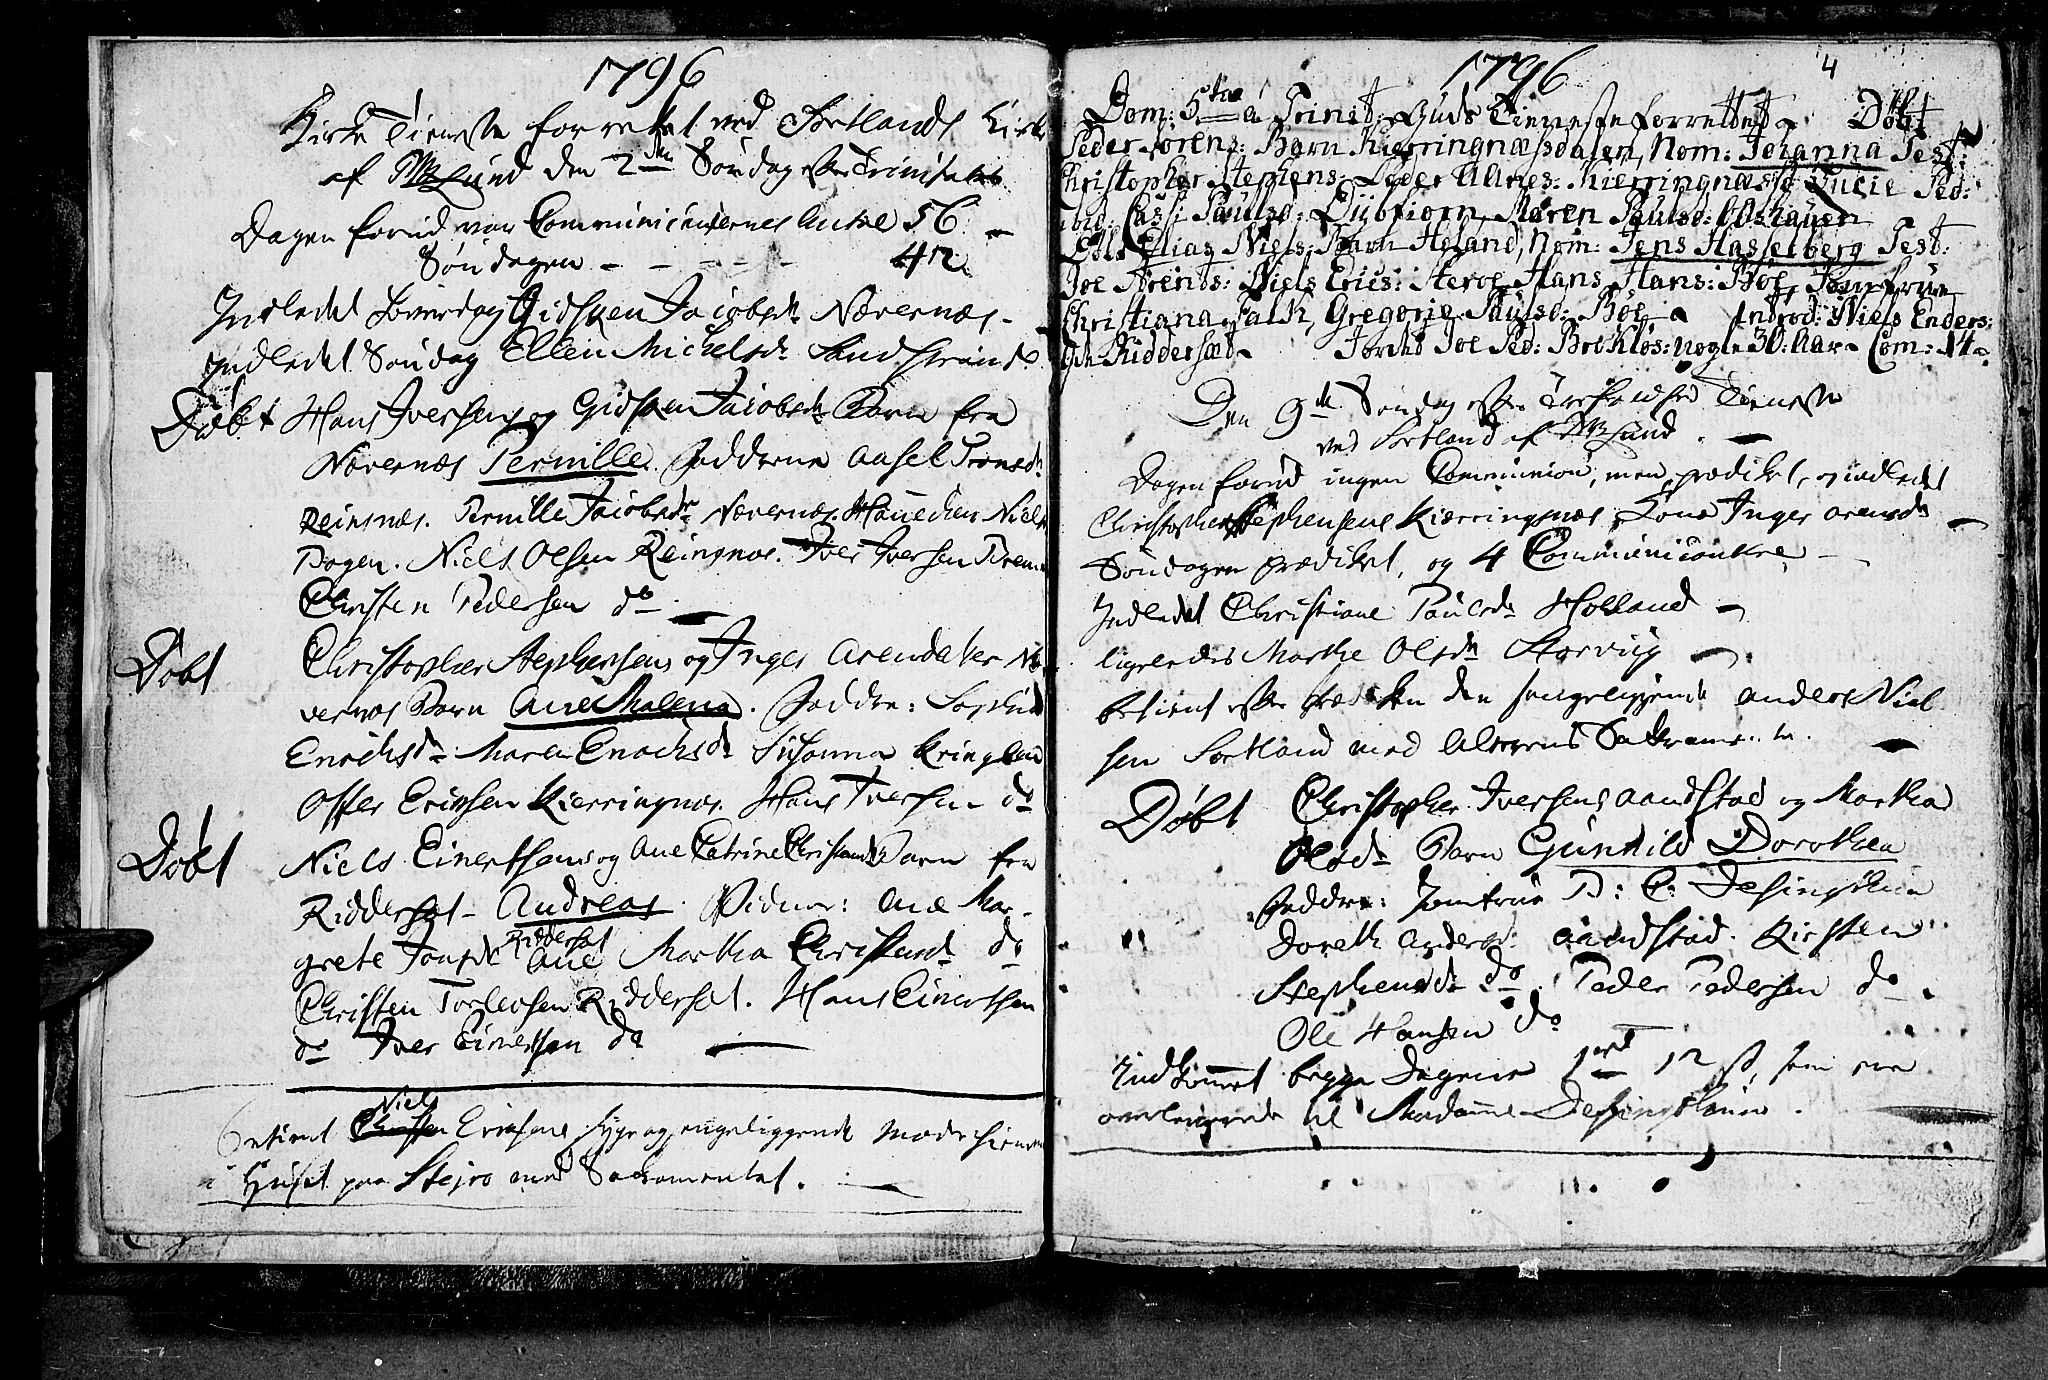 1796
Kirke Tieneste forrettet ved Sortlands Kirke
af Mr Lund den 2den Søndag efter Trinitatis
Dagen forud var Communicanternes Antal 56
Søndagen - - - - - 42
Indledet Løverdag Gidsken Jacobsdr Nævernæs -
Indledet Søndag Ellen Michelsdr Sandstrand
Døbt Hans Iversens og Gidsken Jacobsdr Barn fra
Nævernæs Pernille. Faddere Aasel
Reinsnæs. Pernille Jacobsdr Nævernæs. Niels
Bogen. Niels Olsen Reinsnæs. Iver Iversen
Christen Pedersen do
Døbt Christopher Stephensens og Inger Arendater
vernæs Barn Ane Malena. Faddre:
Enochsdr Maren Enochsdr Susanna
Offer Erichsen Kierringnæs. Hans Iversen do
Døbt Niels Einertsens og Ane Catrine Christensdr Barn fra
Riddersæt - Andreas. Vidner: Ane Mar-
Riddersæt
grete Ane Martha Christensdr do
Christen Riddersæt. Hans Einertsen
do Iver Einertsen do
Niels
Betient Christen Erichsens syge og sengeliggende
i Huset paa Steiro med Sacramentet.
1796
4
Dom: 5ta a Trinit: Guds Tieneste forrettet. Døbt
Peder Sørens: Barn Kierringnæsdalen, Nom: Johanna Test:
Christopher Stephens: Peder Aanes: Kierringnæs Lucie Ped:
ibid: Paulsd: Maren Paulsd:
Elias Niels: Barn Høland, Nom: Jens Hasselberg Test:
Joe Arents: Niels Erics: Steroe, Hans Hans: Boe, Jomfrue
Christiana Falk, Gregorie Paulsd: Bøe Introd: Niels Enders:
Riddersæt Jordet Joe Ped: nogle 30: Aar Com: 14
Den 9de Søndag efter Trefoldhed Tieneste
ved Sortland af Mr Lund.
Dagen forud ingen Communion, men prædiket, og indledet
Christopher Stephensens Kierringnæs, Kone Inger Arensdr
Søndagen prædiket, og 4 Communicantere
Indledet Christiane Paulsdr Holland
ligeledes Marthe Olsdr Storvig
betient efter Prædiken den sengeliggende Anders Niel
sen Sortland med Alterens Sakramente.
Døbt Christopher Iversens Aandstad og Martha
Olsdr Barn Gunhild Dorothea
Faddre: Jomfrue B: C: Desingthun
Doreth Andersd: Aandstad. Kirsten
Stephensdr do Peder Pedersen do
Ole Hansen do
Indkommet begge Dagene 1rd 12 s, som ere
overleverede til Madamme Desingthun.